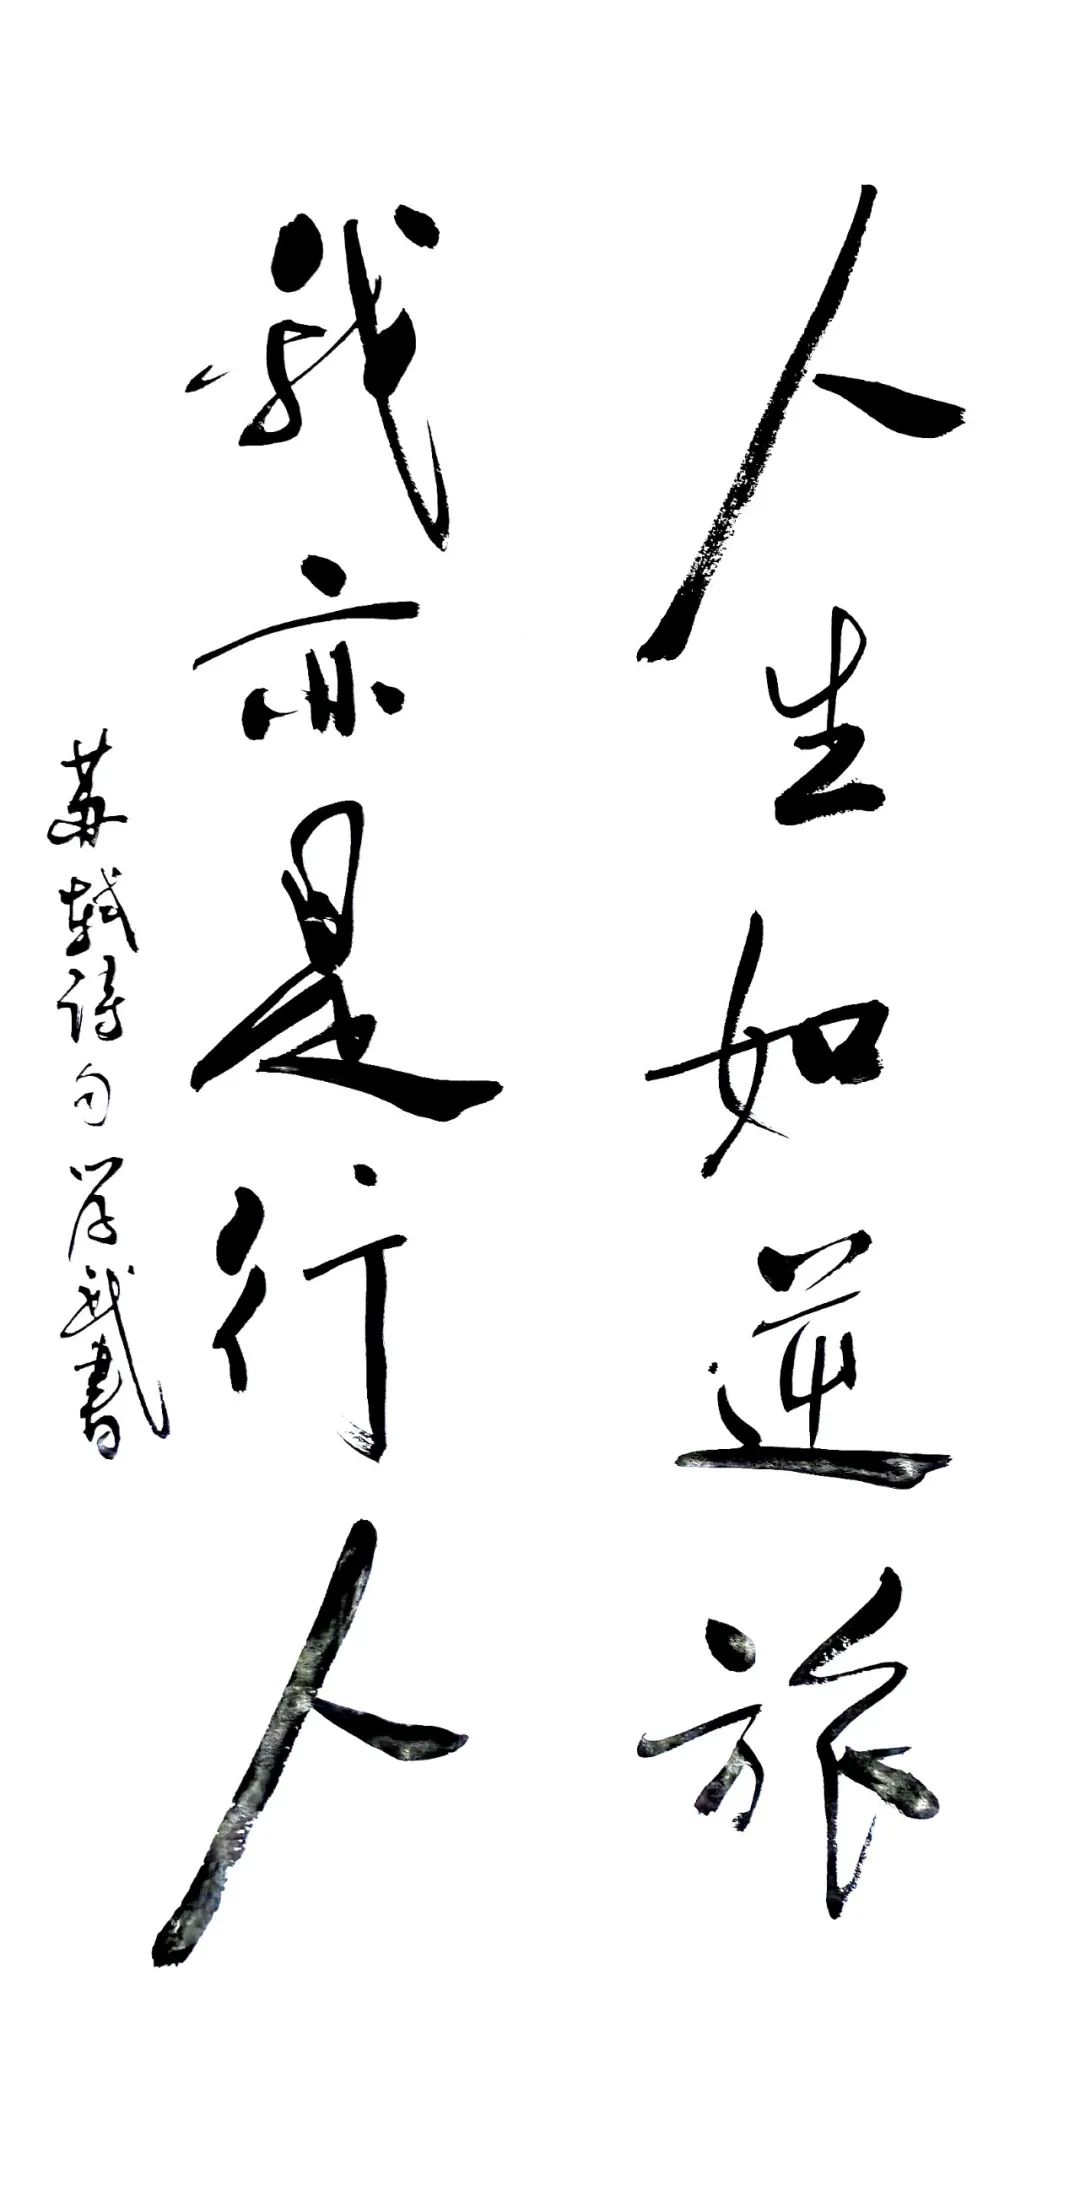 人生如逆旅
我亦是行人
苏轼诗句学武书